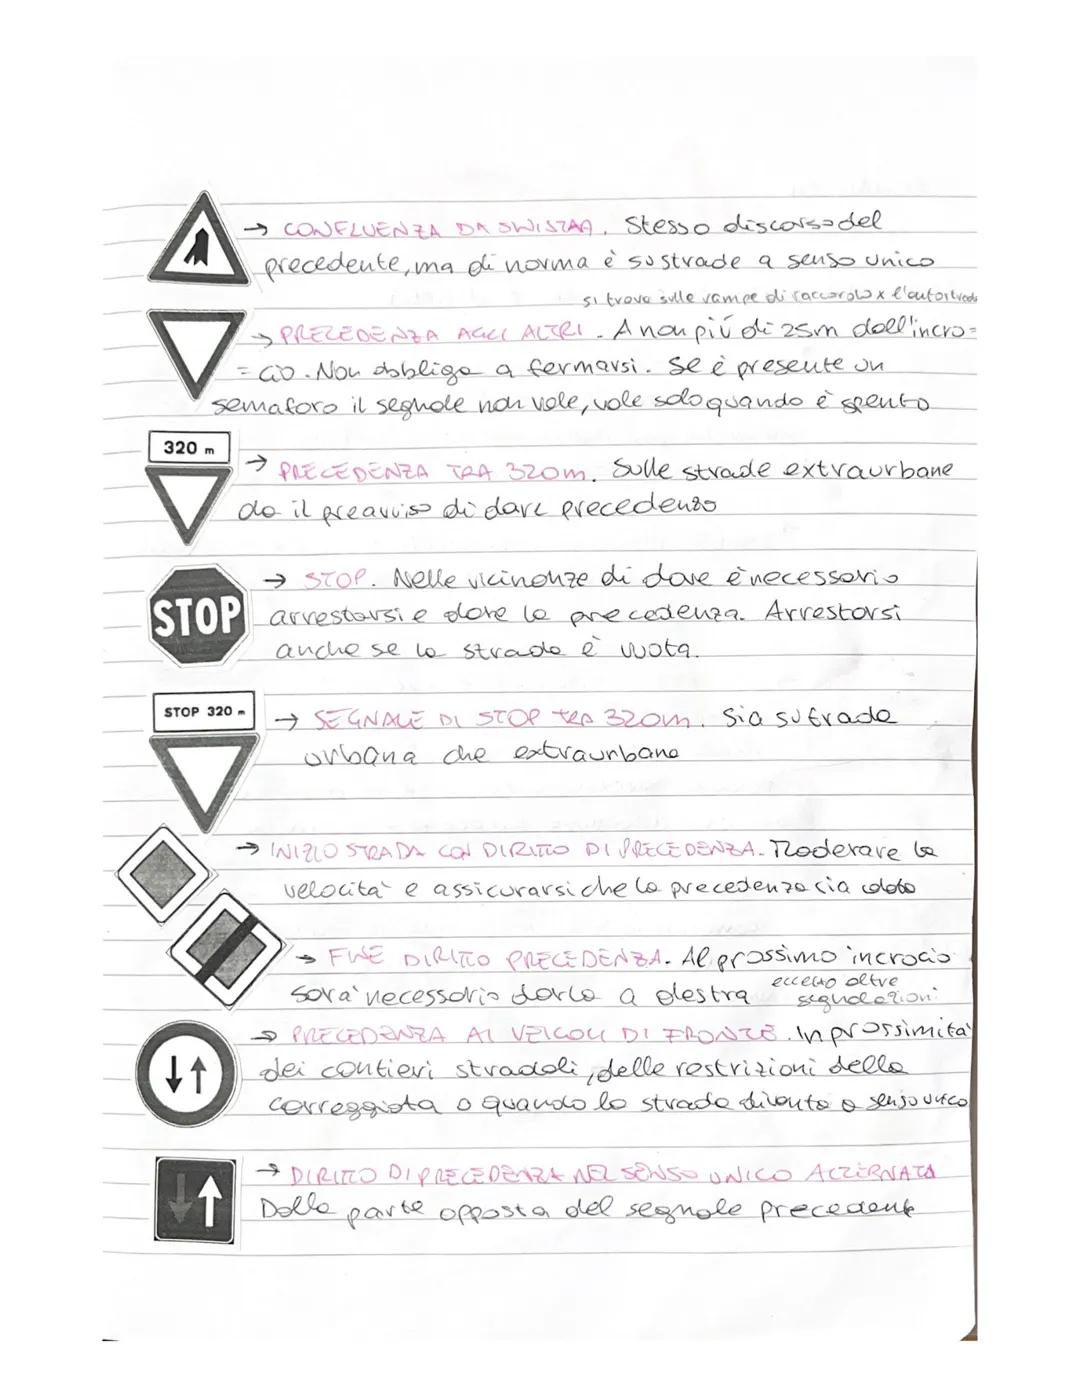 → CONFLUENZA DA SINISTRA. Stesso discorso del
precedente, ma di norma è su strade a senso unico
si trova sulle rampe di raccordo x l'autostrada
→ PRECEDENZA AGLI ALTRI. A non più di 25m dall'incro=
= cio. Non obbliga a fermarsi. Se è presente un
semaforo il segnale non vale, vale solo quando è spento
320 m
→ PRECEDENZA TRA 320m. Sulle strade extraurbane
da il preavviso di dare precedenza
STOP
→ STOP. Nelle vicinanze di dove è necessario
arrestarsi e dare la precedenza. Arrestarsi
anche se la strada è vuota.
STOP 320 m
→ SEGNALE DI STOP TRA 320m. Sia su trada
urbana che extraurbana
→ INIZIO STRADA CON DIRITTO DI PRECEDENZA. Moderare la
velocità e assicurarsi che la precedenza sia data
→ FINE DIRITTO PRECEDENZA. Al prossimo incrocio
sarà necessario darla a destra eccetto altre segnalazioni
→ PRECEDENZA AI VEICOLI DI FRONTE. In prossimità
dei cantieri stradali, delle restrizioni della
carreggiata o quando la strada diventa a senso unico
→ DIRITTO DI PRECEDENZA NEL SENSO UNICO ALTERNATA
Dalla parte opposta del segnale precedente